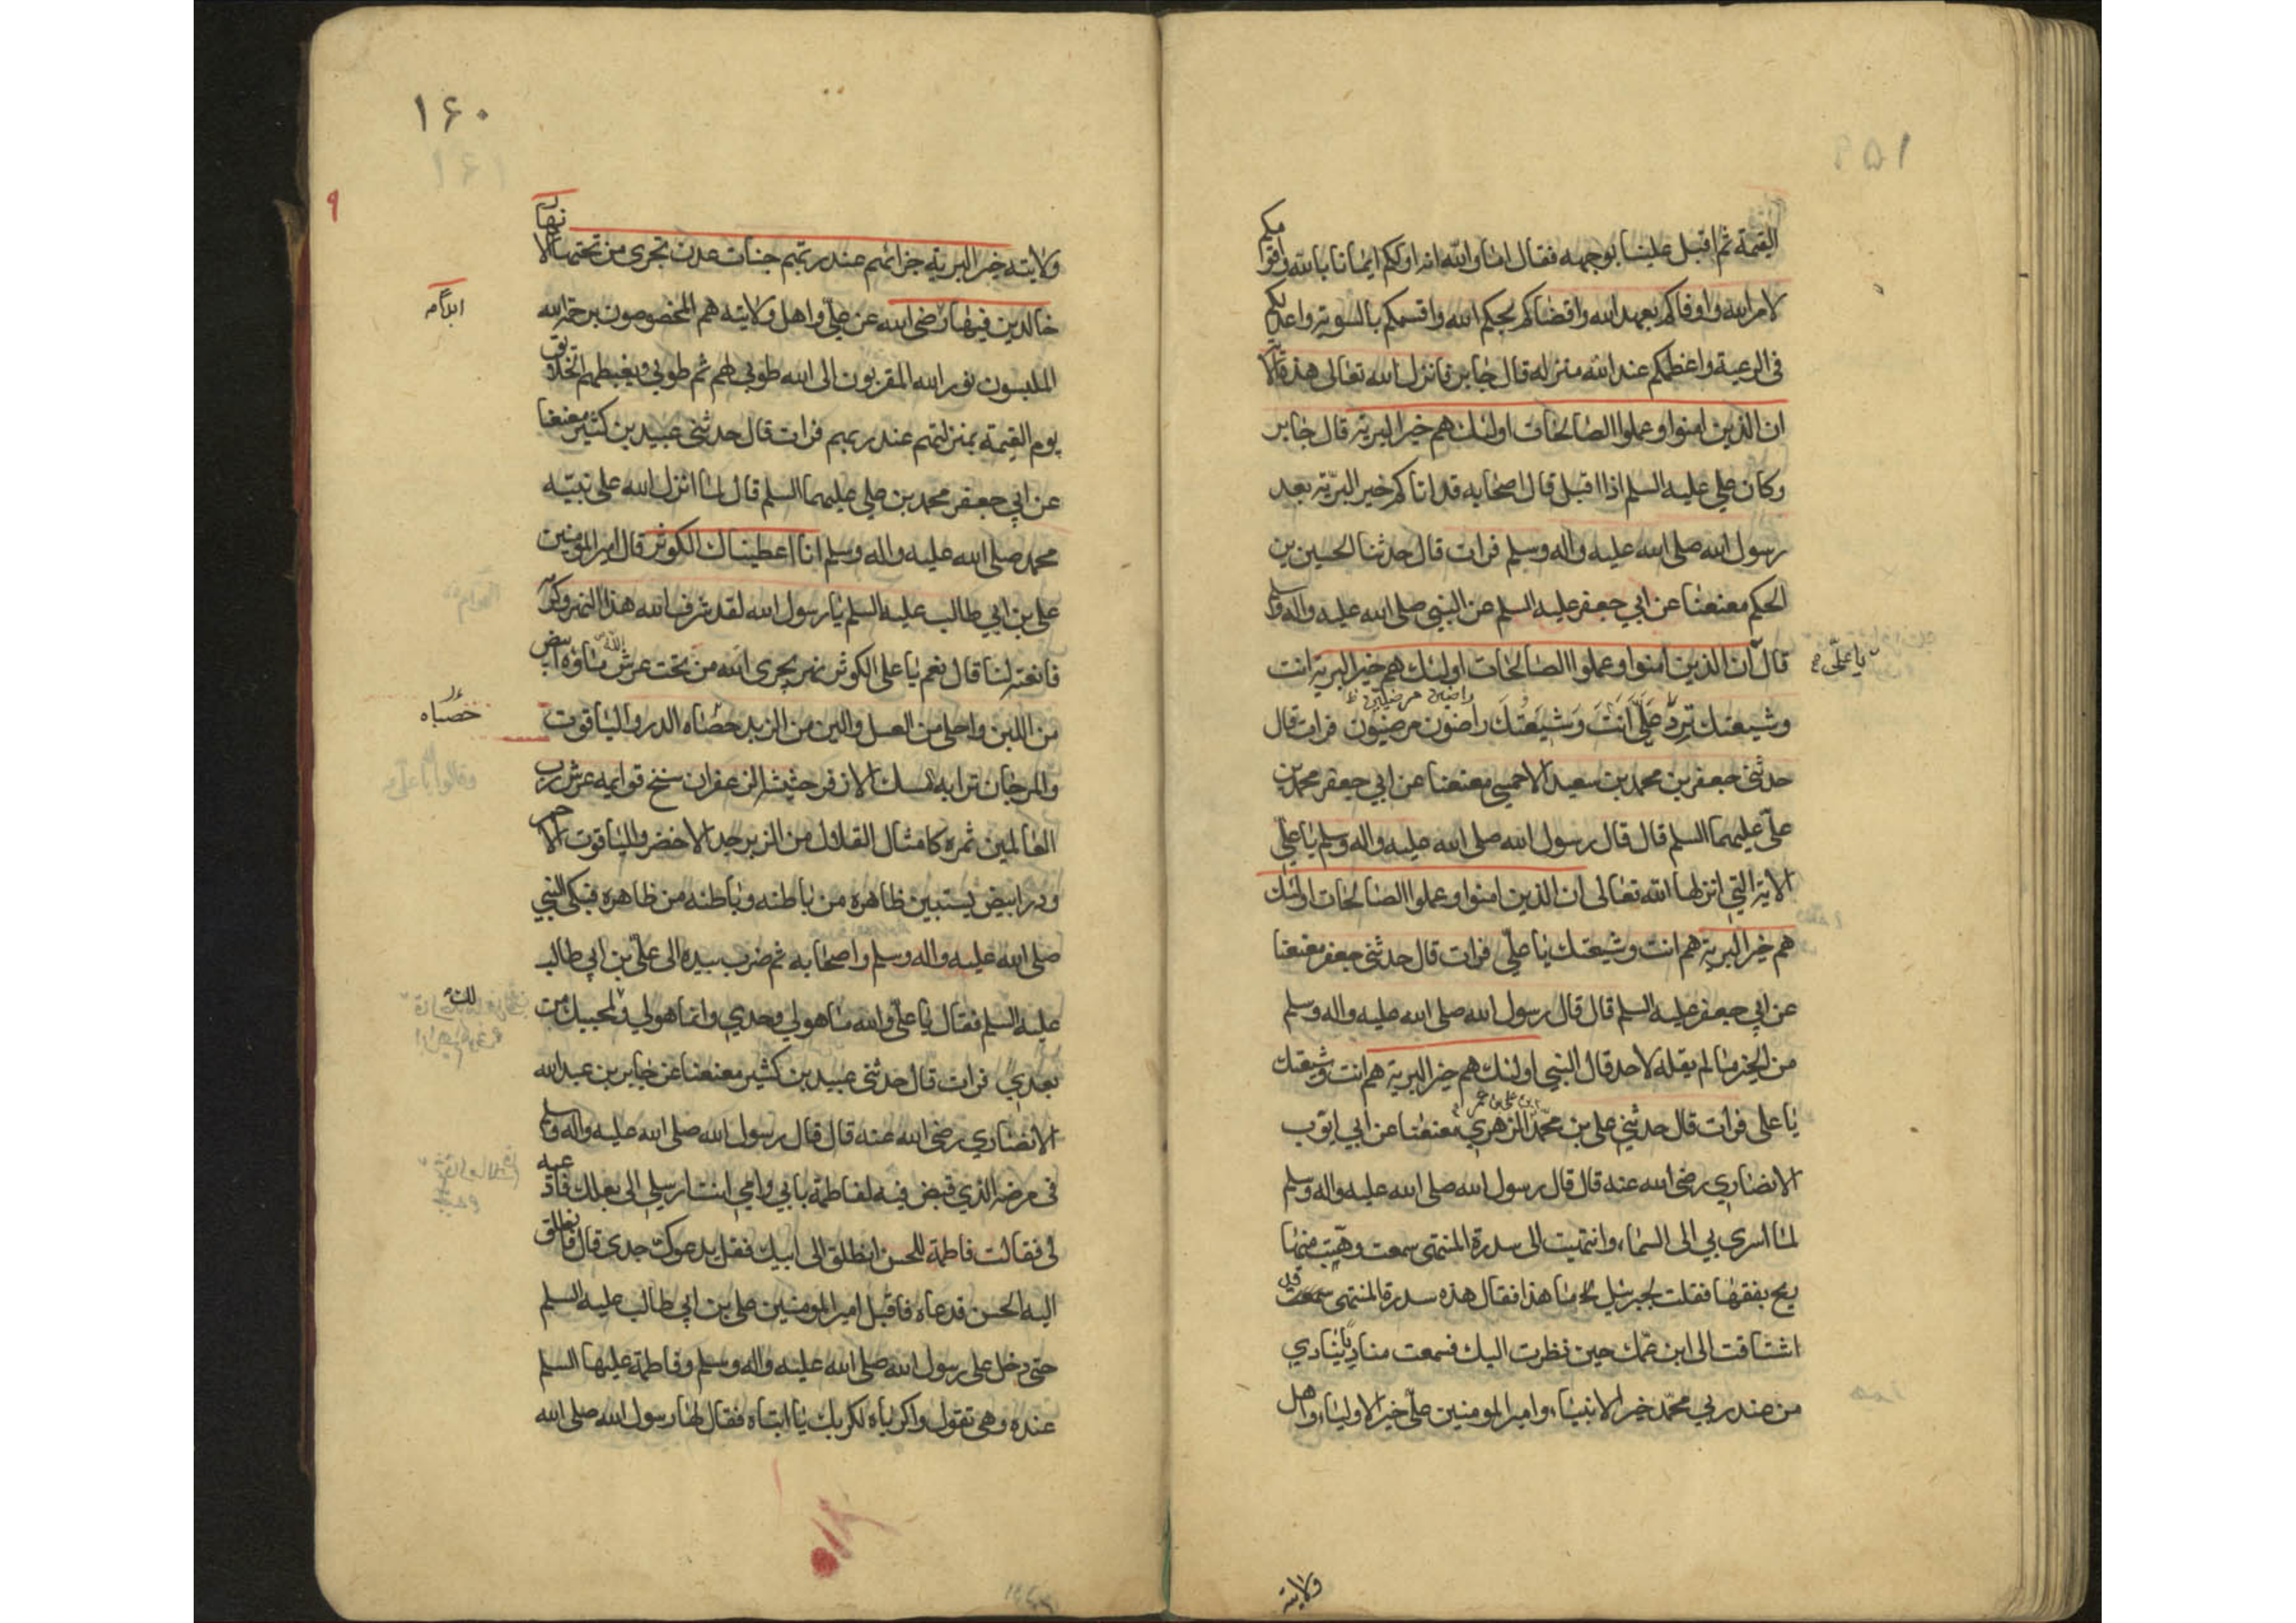 القيمة ثم اقبل علينا بوجهه فقال اما والله انه اولكم ايمانا بالله واقومكم
لامر الله واوفاكم بعهد الله واقضاكم بحكم الله واقسمكم بالسوية واعدلكم
فى الرعية واعظمكم عند الله منزلة قال جابر فانزل الله تعالى هذه الآية
ان الذين امنوا وعملوا الصالحات اولئك هم خير البرية قال جابر
وكان علي عليه السلم اذا اقبل قال اصحابه قد اتاكم خير البرّية بعد
رسول الله صلى الله عليه واله وسلم فرات قال حدثنا الحسين بن
الحكم معنعنا عن ابي جعفر عليه السلم عن النبي صلى الله عليه واله وسلم
قال ان الذين امنوا وعملوا الصالحات اولئك هم خير البرية انت
يا علّى
راضين مرضيين ظ
وشيعتك ترد علّي انت وشيعتك راضون مرضيون فرات قال
حدثنى جعفر بن محمد بن سعيد الاحمسي معنعنا عن ابي جعفر محمد بن
علّي عليهما السلم قال قال رسول الله صلى الله عليه واله وسلم يا علّي
الاية التي انزلها الله تعالى ان الذين امنوا وعملوا الصالحات اولئك
هم خير البرية هم انت وشيعتك يا علّي فرات قال حدثنى جعفر معنعنا
عن ابي جعفر عليه السلم قال قال رسول الله صلى الله عليه واله وسلم
من الخير ما لم يقله لاحد قال النبي اولئك هم خير البرية هم انت وشيعتك
بن علي بن عمر
يا على فرات قال حدثني علي بن محمّد الزهري معنعنا عن ابي ايّوب
الانصاري رضى الله عنه قال قال رسول الله صلى الله عليه واله وسلم
لما اسرى بي الى السماء وانتهيت الى سدرة المنتهى سمعت وهبّت منها
ريح بفقهها فقلت لجبرئيل ما هذا فقال هذه سدرة المنتهى قد
اشتاقت الى ابن عمك حين نظرت اليك فسمعت مناديا ينادي
من عند ربي محمّد خير الانبياء وامير المومنين علّي خير الاولياء واهل
ولايته
١٦٠
٩
ولايته خير البرية جزائهم عند ربهم جنات عدن تجرى من تحتها الانهار
خالدين فيها رضى الله عن علّي واهل ولايته هم المخصوصون برحمة الله
ابدا
الملبسون نور الله المقربون الى الله طوبى لهم ثم طوبى ويغبطهم الخلائق
يوم القيمة بمنزلتهم عند ربهم فرات قال حدثنى عبيد بن كثير معنعنا
عن ابي جعفر محمد بن علي عليهما السلم قال لما انزل الله على نبيّه
محمد صلى الله عليه واله وسلم انا اعطيناك الكوثر قال امير المومنين
على بن ابي طالب عليه السلم يا رسول الله لقد شرف الله هذا النهر وكرم
فانعته لنا قال نعم يا على الكوثر نهر يجرى الله من تحت عرش الله ماؤه ابيض
من اللبن واحلى من العسل والين من الزبد حصاه الدر والياقوت
حصباه
والمرجان ترابه مسك الاذفر حشيشه الزعفران سنخ قوايمه عرش رب
العالمين ثمره كامثال القلال من الزبرجد الاخضر والياقوت الاحمر
ودر ابيض يستبين ظاهره من باطنه وباطنه من ظاهره فبكى النبي
صلى الله عليه واله وسلم واصحابه ثم ضرب بيده الى علّي بن ابي طالب
عليه السلم فقال يا علّي والله ما هو لي وحدي وانما هو لي ولمحبيك من
بعدي فرات قال حدثنى عبيد بن كثير معنعنا عن جابر بن عبد الله
الانصاري رضى الله عنه قال قال رسول الله صلى الله عليه واله وسلم
فى مرضه الذي قبض فيه لفاطمة بابي وامي انت ارسلي الى بعلك فادعيه
لى فقالت فاطمة للحسن انطلق الى ابيك فقل يدعوك جدى قال فانطلق
اليه الحسن فدعاه فاقبل امير المومنين علي بن ابي طالب عليه السلم
حتى دخل على رسول الله صلى الله عليه واله وسلم وفاطمة عليها السلم
عنده وهى تقول واكرباه لكربك يا ابتاه فقال لها رسول الله صلى الله